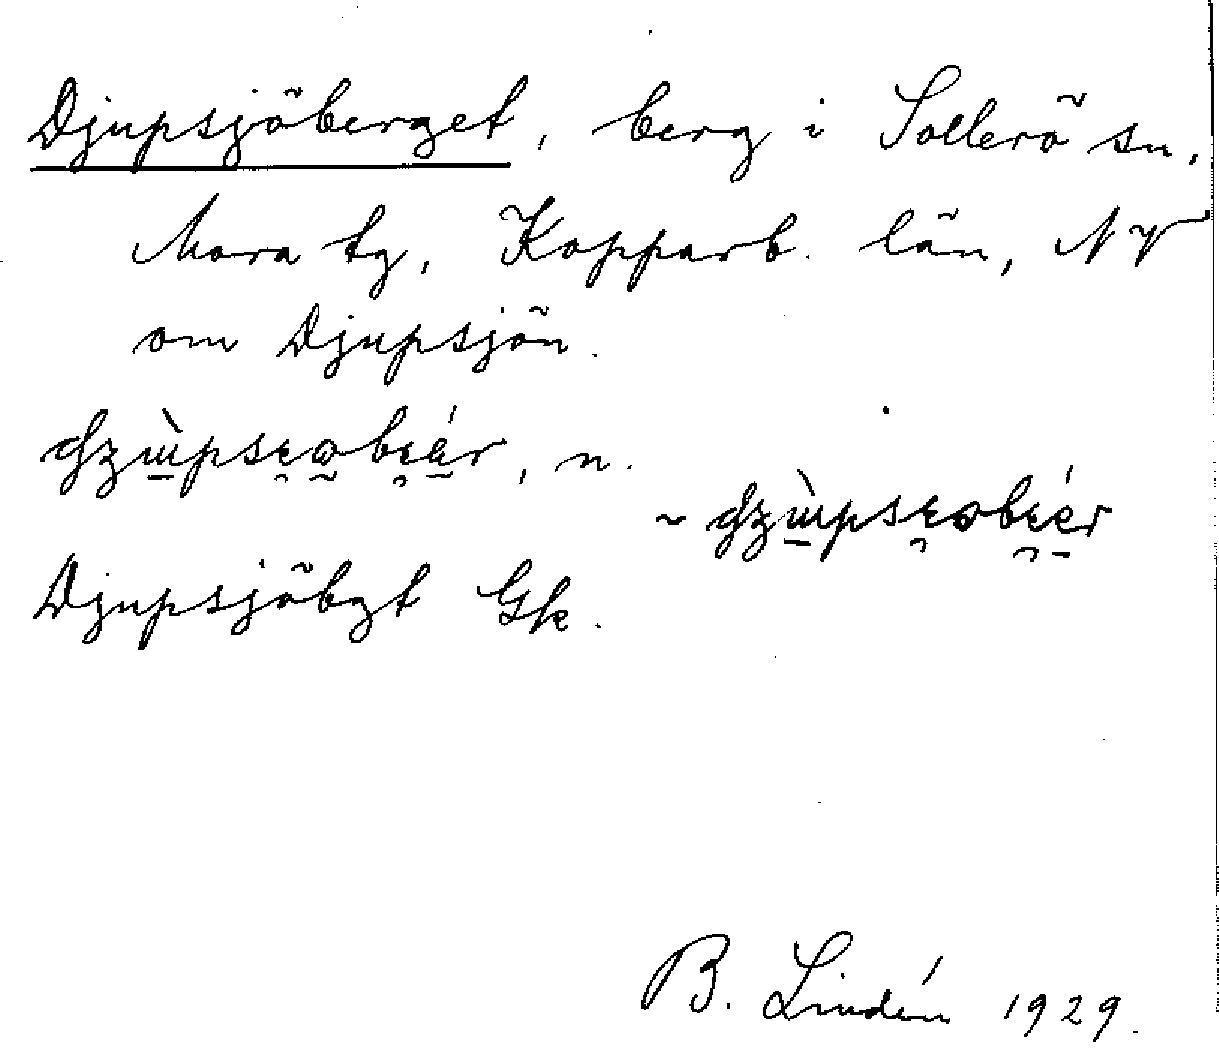 Djupsjöberget, berg i Sollerö sn,
Mora tg, Kopparb. län, NV
om Djupsjön.
n.
~
Djupsjöbgt Gk.
B. Lindén 1929.